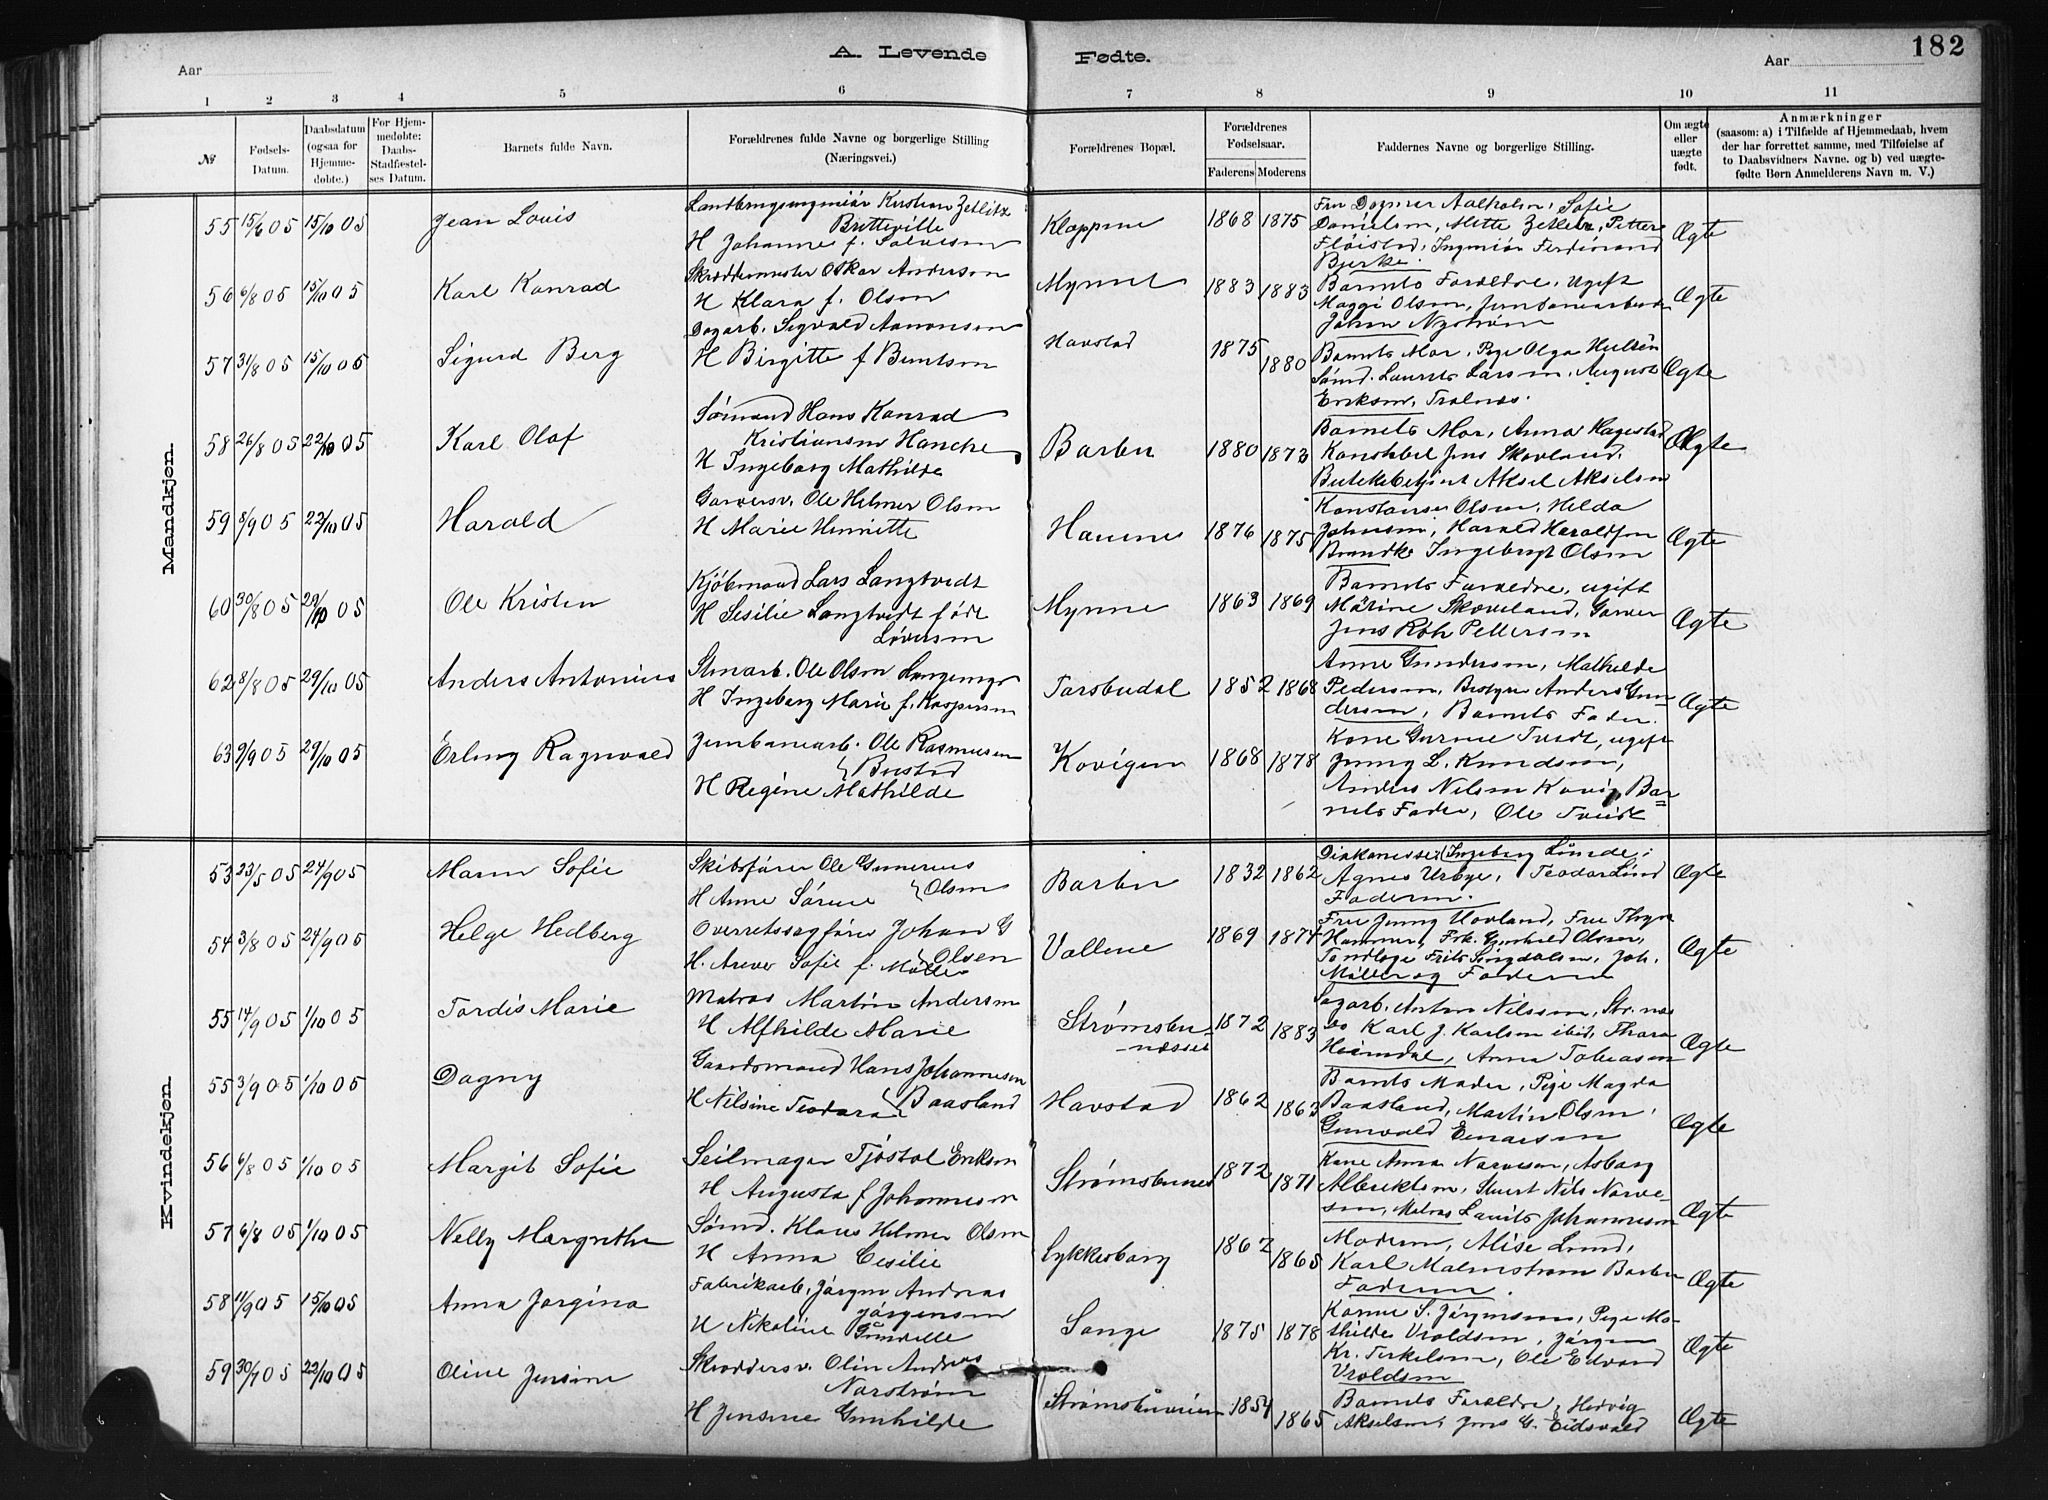 A. Levende Fødte.
182
Aar
Aar
1 2 3 4 5 6 7 8 9 10 11
№
Fødsels-Datum.
Daabsdatum (ogsaa for Hjemme-døbte.)
For Hjem-medøbte: Daabs-Stadfæstel-ses Datum.
Barnets fulde Navn.
Forældrenes fulde Navne og borgerlige Stilling (Næringsvei.)
Forældrenes Bopæl.
Forældrenes Fødselsaar.
Faderens Moderens
Faddernes Navne og borgerlige Stilling.
Om ægte eller uægte født.
Anmærkninger
(saasom: a) i Tilfælde af Hjemmedaab, hvem
der har forrettet samme, med Tilføielse af
to Daabsvidners Navne. og b) ved uægte-
fødte Børn Anmelderens Navn m. V.)
Mandkjøn.
55 15/6 05 15/10 05 Jean Louis
Kristian Zetlitz
H Johanne f.
Kloppene 1868 1875
Fru Dagmar Aalholm, Sofie
Danielsen, Mette Zetlitz, Petter
Fløistad, Ingeniør Ferdinand
Bjerke.
Ægte
56 6/8 05 15/10 05 Karl Konrad
Skræddermester Oskar Andersen
H Klara f. Olsen
1883 1883
Barnets Forældre, Ugift
Maggi Olsen,
Johan Nystrøm
Ægte
57 31/8 05 15/10 05 Sigurd Berg
Dagarb. Sigvald Aanonsen
H Birgitte f Berntsen
Havstad 1875 1880
Barnets Mor, Pige Olga
Sømd. Laurits Larsen, August
Eriksen,
Ægte
58 26/8 05 22/10 05 Karl Olaf
Sømand Hans Konrad
Kristiansen Hancke
H Ingeborg Mathilde
Barbu 1880 1873
Barnets Mor, Anna Hagestad
Konstabel Jens Skovland,
Butikbetjent Aksel Akselsen
Ægte
59 8/9 05 22/10 05 Harald
Garversv. Ole Helmer Olsen
H Marie Henriette
1876 1875
Konstanse Olsen, Hilda
Johnsen, Harald Haroldsen
Ingebregt Olsen
Ægte
60 30/8 05 29/10 05 Ole Kristen
Kjøbmand Lars Langtvedt
H Sesilie Langtvedt født
1863 1869
Barnets Forældre, ugift
Marine Skoveland, Garver
Jens Pettersen
Ægte
62 8/8 05 29/10 05 Anders Antonius
Stenarb. Ole Olsen
H Ingeborg Marie f. Kaspersen
Torsbudal 1852 1868
Anne Gundersen, Mathilde
Pedersen, Anders Gun-
dersen, Barnets Fader.
Ægte
63 9/9 05 29/10 05 Erling Ragnvald
Jernbanearb. Ole Rasmussen
Bustad
H Regine Mathilde
Kovigen 1868 1878
Kone Gurine Tveidt, ugift
Jenny L. Knudsen,
Anders Nilsen Kovig, Bar-
nets Fader, Ole Tveidt
Kvindekjøn.
53 23/5 05 24/9 05 Maren Sofie
Skibsfører Ole Gunerius
Olsen
H Anne Sørine
Barbu 1832 1862
Diakonisse Ingeborg
Agnes Urbye, Teodor Lund
Faderen.
Ægte
54 3/8 05 24/9 05 Helge Hedberg
Overretssagfører Johan G
Olsen
H. Sofie f. Møller
Vollene 1869 1874
Fru Jenny Hovland, Fru
Hammer, Frk. Gunhild Olsen,
Tandlæge Frits Joh.
Møller og Faderen
Ægte
55 14/9 05 1/10 05 Tordis Marie
Matros Martin Andersen
H Alfhilde Marie
Strømsbu
næsset
1872 1883
Sagarb. Anton Nilsson,
Karl J. Karlsen ibid, Thora
Heimdal, Anna Tobiasen
Ægte
55 3/9 05 1/10 05 Dagny
Gaardsmand Hans Johannesen
Baasland
H Nilsine Teodora
Havstad 1862 1863
Barnets Moder, Pige Magda
Baasland, Martin Olsen,
Gunvald Einarsen
Ægte
56 6/8 05 1/10 05 Margit Sofie
Seilmager Tjøstol Eriksen
H Augusta f Johannesen
Strømsbunes 1872 1871
Kone Anna Narvesen, Asborg
Albrektsen, Stuert Nils Narve-
sen, Matros Laurits Johannesen
Ægte
57 6/8 05 1/10 05 Nelly Margrethe
Sømd. Klaus Helmer Olsen
H Anna Cesilie
Lykkesborg 1862 1865
Moderen, Alise Lund,
Karl Malmstrøm Barbu
Faderen.
Ægte
58 11/9 05 15/10 05 Anna Jorgina
Fabrikarb. Jörgen Andreas
Jørgensen
H Nikoline Gundelle
Songe 1875 1878
Konne S. Jörgensen, Pige Ma-
thilde Vroldsen, Jörgen
Kr. Terkelsen, Ole Edvard
Vroldsen
Ægte
59 30/7 05 22/10 05 Oline Jensine
Skræddersv. Olin Andreas
Norstrøm
H Jensine Gunhilde
1854 1865
Barnets Forældre, Hedvig
Akselsen, Jens G. Eidsvold
Ægte